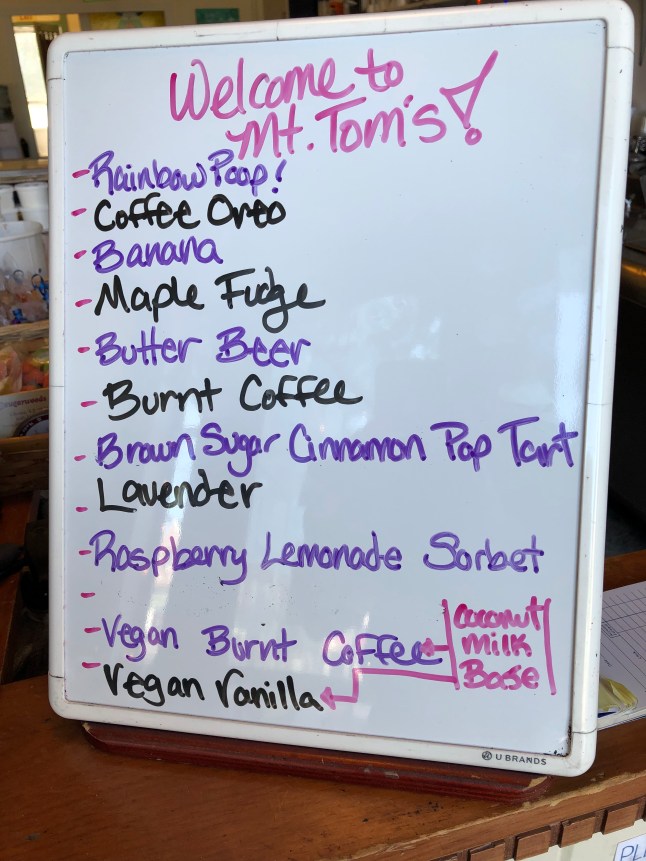 Welcome to
Mt. Tom's!
- Rainbow Poop!
- Coffee Oreo
- Banana
- Maple Fudge
- Butter Beer
- Burnt Coffee
- Brown Sugar Cinnamon Pop Tart
- Lavender
- Raspberry Lemonade Sorbet
-
- Vegan Burnt Coffee
- Vegan Vanilla
Coconut
Milk
Base
U BRANDS
PL